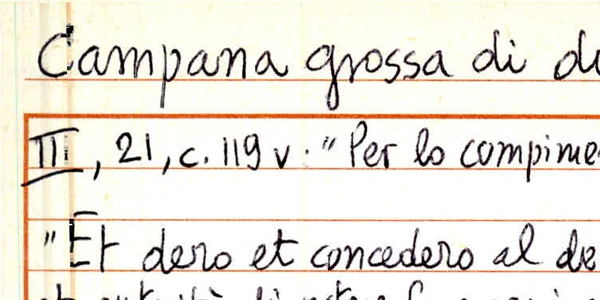 Campana grossa di
III, 21, c. 119 v. "Per lo
"Et dero et concedero al